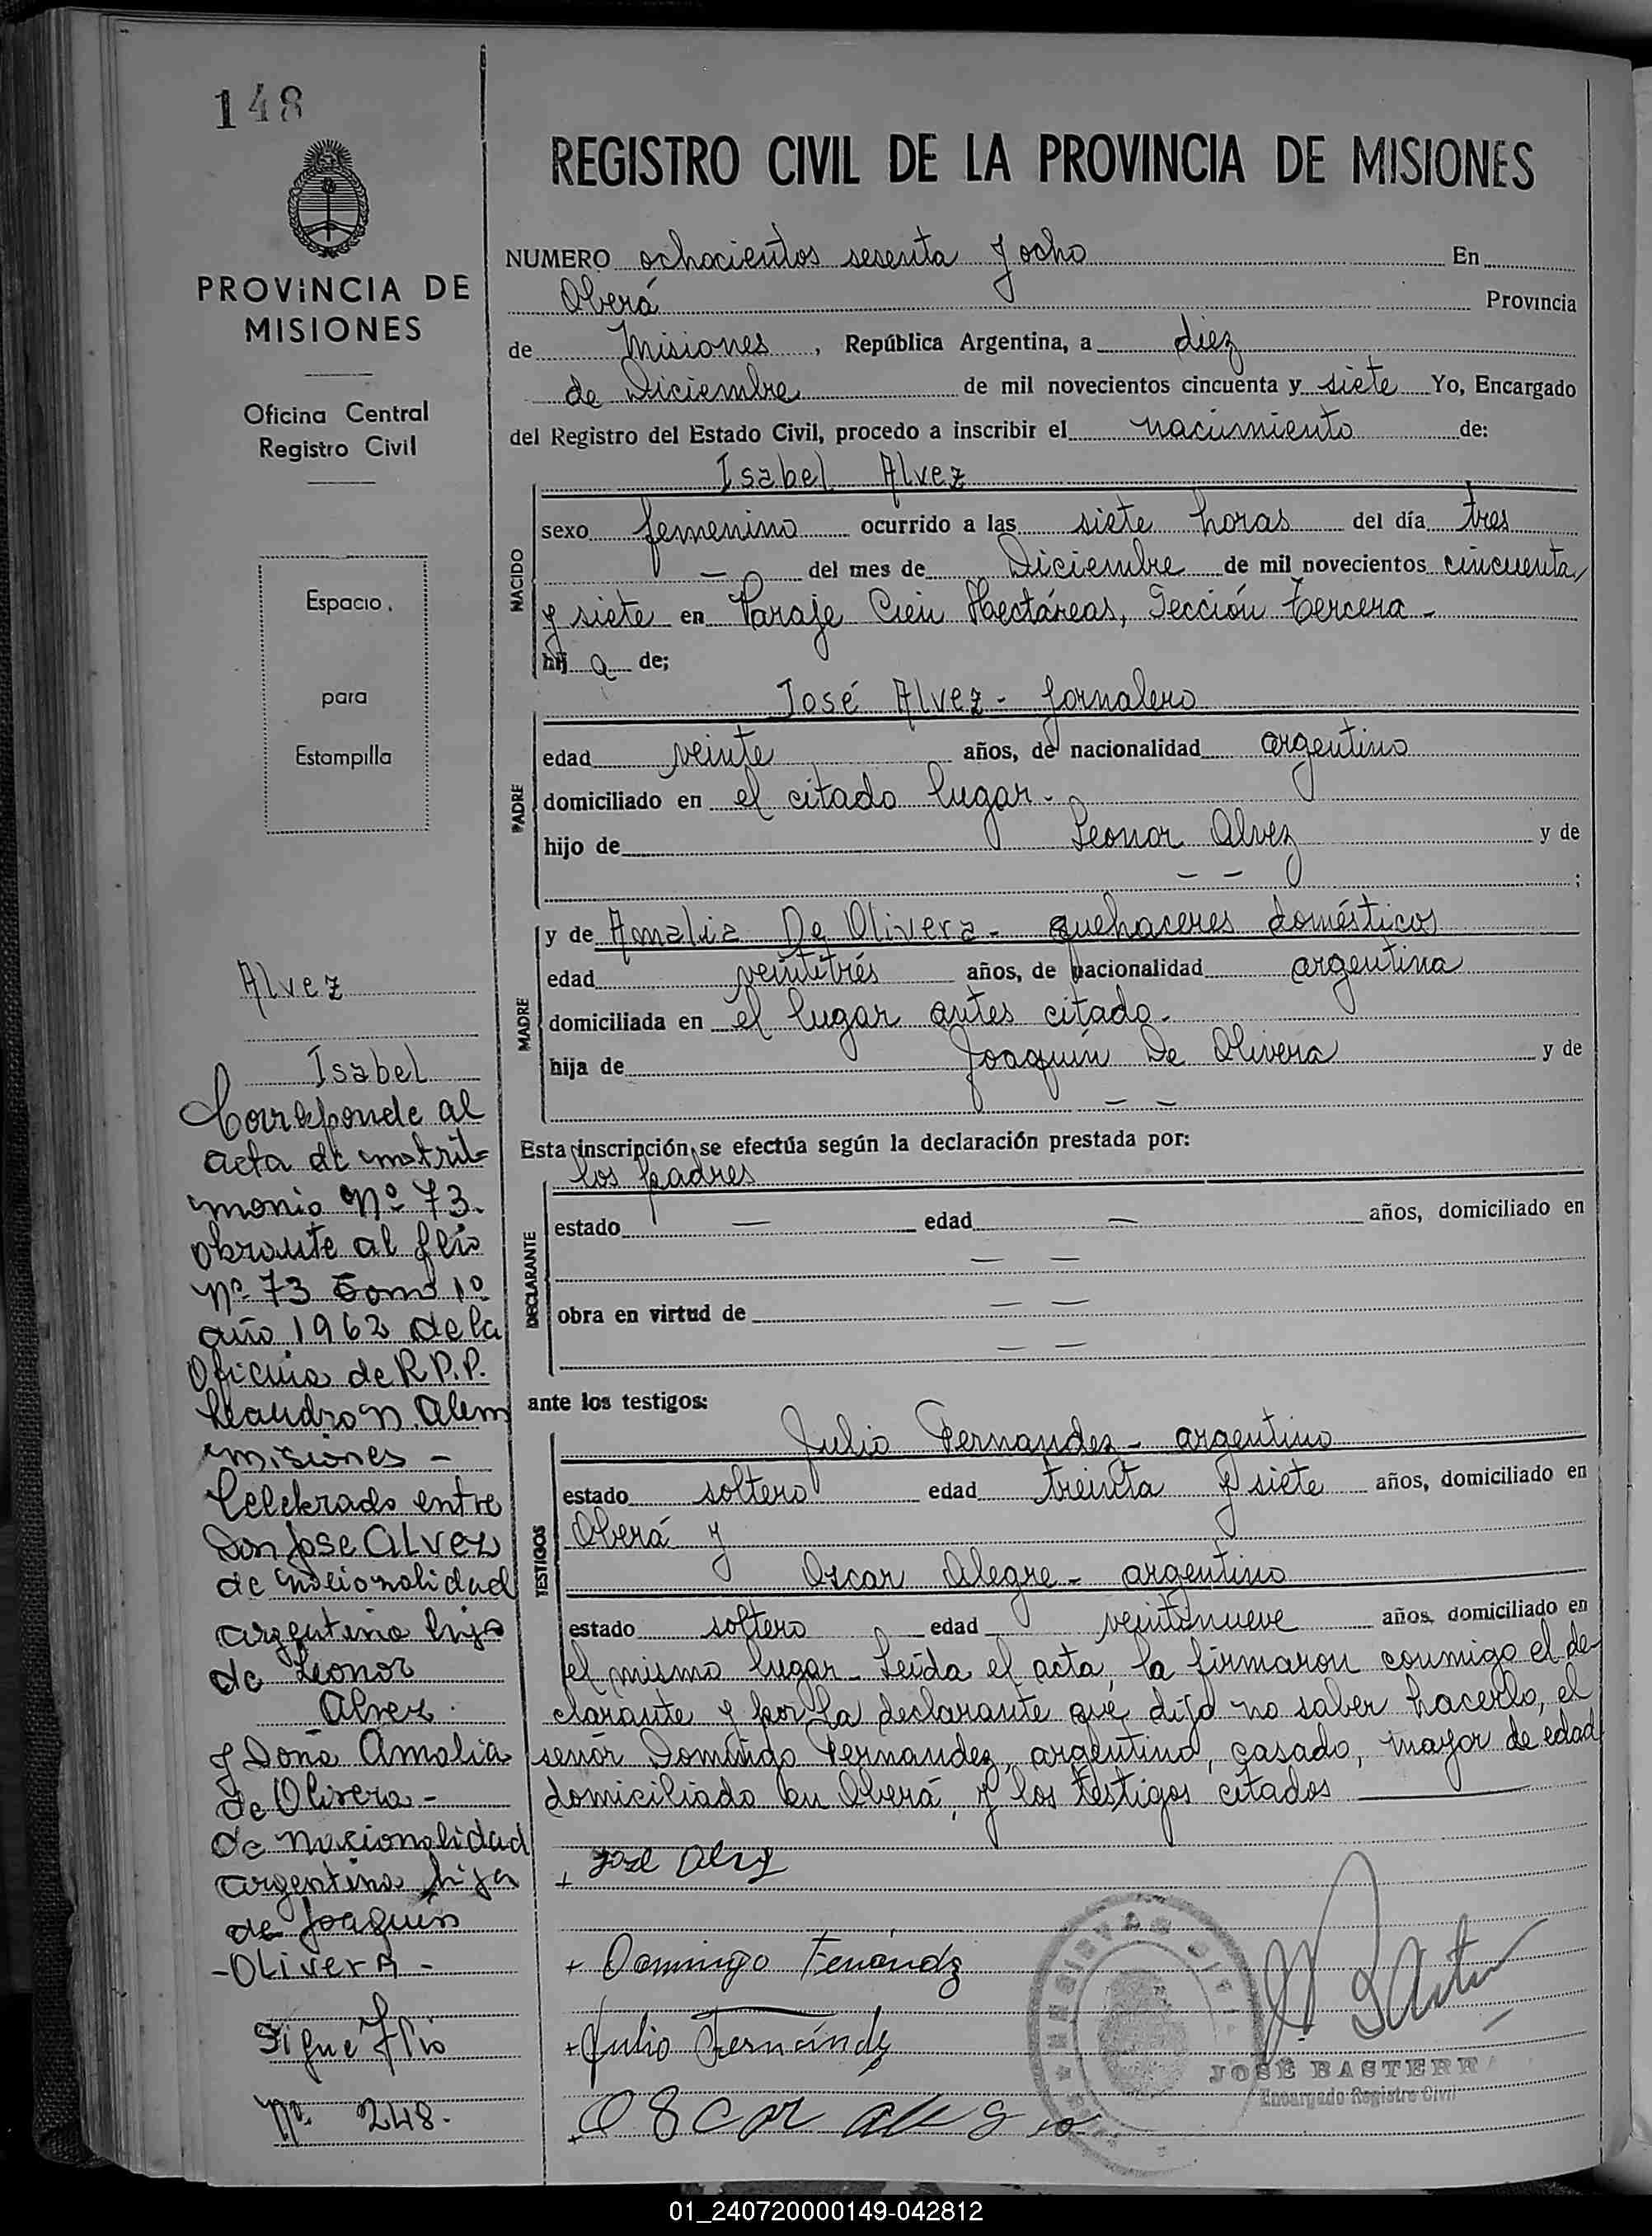 148
PROVINCIA DE
MISIONES
Oficina Central
Registro Civil
Espacio
para
Estampilla
Alvez
Isabel
Corresponde al
acta de matri=
monio Nº 73.
obrante al flio
Nº 73 Tomo 1º
año 1962 de la
Oficina de R.P.P.
Leandro N. Alem
misiones -
Celebrado entre
Don Jose Alvez
de nacionalidad
argentino hijo
de Leonor
Alvez.
y Doña Amalia
de Olivera -
de nacionalidad
argentina hija
de Joaquin
- OLiverA -
Sigue flio
Nº 248.
REGISTRO CIVIL DE LA PROVINCIA DE MISIONES
NUMERO ochocientos sesenta y ocho En
Oberá Provincia
de Misiones, República Argentina, a diez
de Diciembre de mil novecientos cincuenta y siete Yo, Encargado
del Registro del Estado Civil, procedo a inscribir el nacimiento de:
Isabel Alvez
NACIDO
sexo femenino ocurrido a las siete horas del día tres
— del mes de Diciembre de mil novecientos cincuenta
y siete en Paraje Cien Hectáreas, Sección tercera -
hij a de;
José Alvez - Jornalero
PADRE
edad veinte años, de nacionalidad argentino
domiciliado en el citado lugar -
hijo de Leonor Alvez y de
— — ;
y de Amalia De Olivera - quehaceres domésticos
MADRE
edad veintitrés años, de nacionalidad argentina
domiciliada en el lugar antes citado -
hija de Joaquín De Olivera y de
— —
Esta inscripción se efectúa según la declaración prestada por:
los padres
DECLARANTE
estado — edad — años, domiciliado en
— —
obra en virtud de — —
— —
ante los testigos:
Julio Fernandez - argentino
TESTIGOS
estado soltero edad treinta y siete años, domiciliado en
Oberá y
Oscar Alegre - argentino
estado soltero edad veintinueve años, domiciliado en
el mismo lugar - Leída el acta, la firmaron conmigo el de-
clarante y por la declarante que dijo no saber hacerlo, el
señor Domingo Fernandez, argentino, casado, mayor de edad
domiciliado en Oberá, y los testigos citados
+ José Alvez
+ Domingo Fernandz
+ Julio Fernández
+ OSCAR
JOSÉ BASTERRA
Encargado Registro Civil
01_240720000149-042812